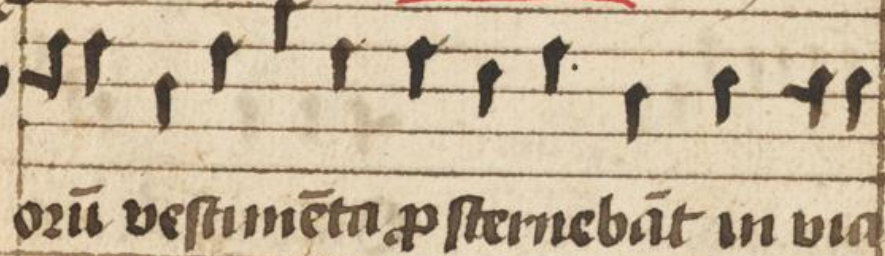 orū vestimēta ꝓsternebāt in via